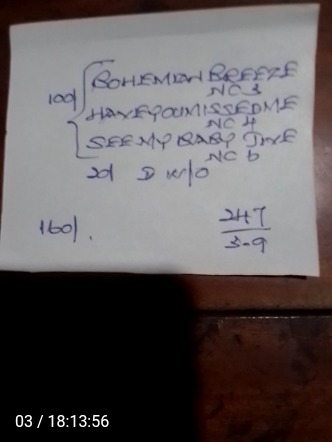 BOHEMIAN BREEZE
NC 3
100/ { HAVEYOUMISSEDME
NC 4
SEE MY BABY JIVE
NC 6
20/ D W/O
160/.
247
3-9
03 / 18:13:56